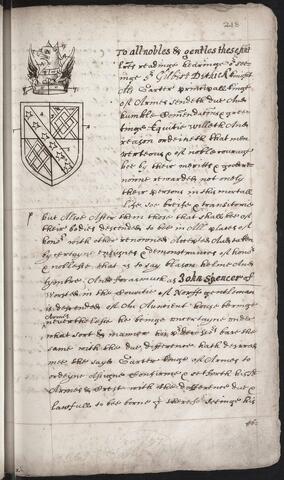 218
To all nobles & gentles these p̃nt
lr̃es readinge hearinge or see-
inge Sr Gilbert Dethick knight
Als Garter principall kinge
of Armes sendeth due And
humble Comendations & gree-
tinge Equitie willeth And
reason ordeineth that men
verteous & of noble courage
bee by their meritts &
renowne rewarded not onely
their persons in this mortall
life soe breife & transitorie
but Allso After them those that shall bee of
their bodies descended to bee in All places of
honor with other renowned Accepted And taken
by certayne ensignes & demonstrances of honor
& noblesse that is to say blazon helme And
tymbre And forasmuch as John Spencer of
in the countie of Norff gentleman
is descended of An Auncient house bearinge
Armes
neverthelesse he beinge uncertayne under
what sort & manner his bare the
same with the due difference hath desired
mee the sayd Garter kinge of Armes to
ordeyne Assigne Confirme & set forth his
Armes & Crest with the difference due &
lawfull to be borne & therefore seeinge his